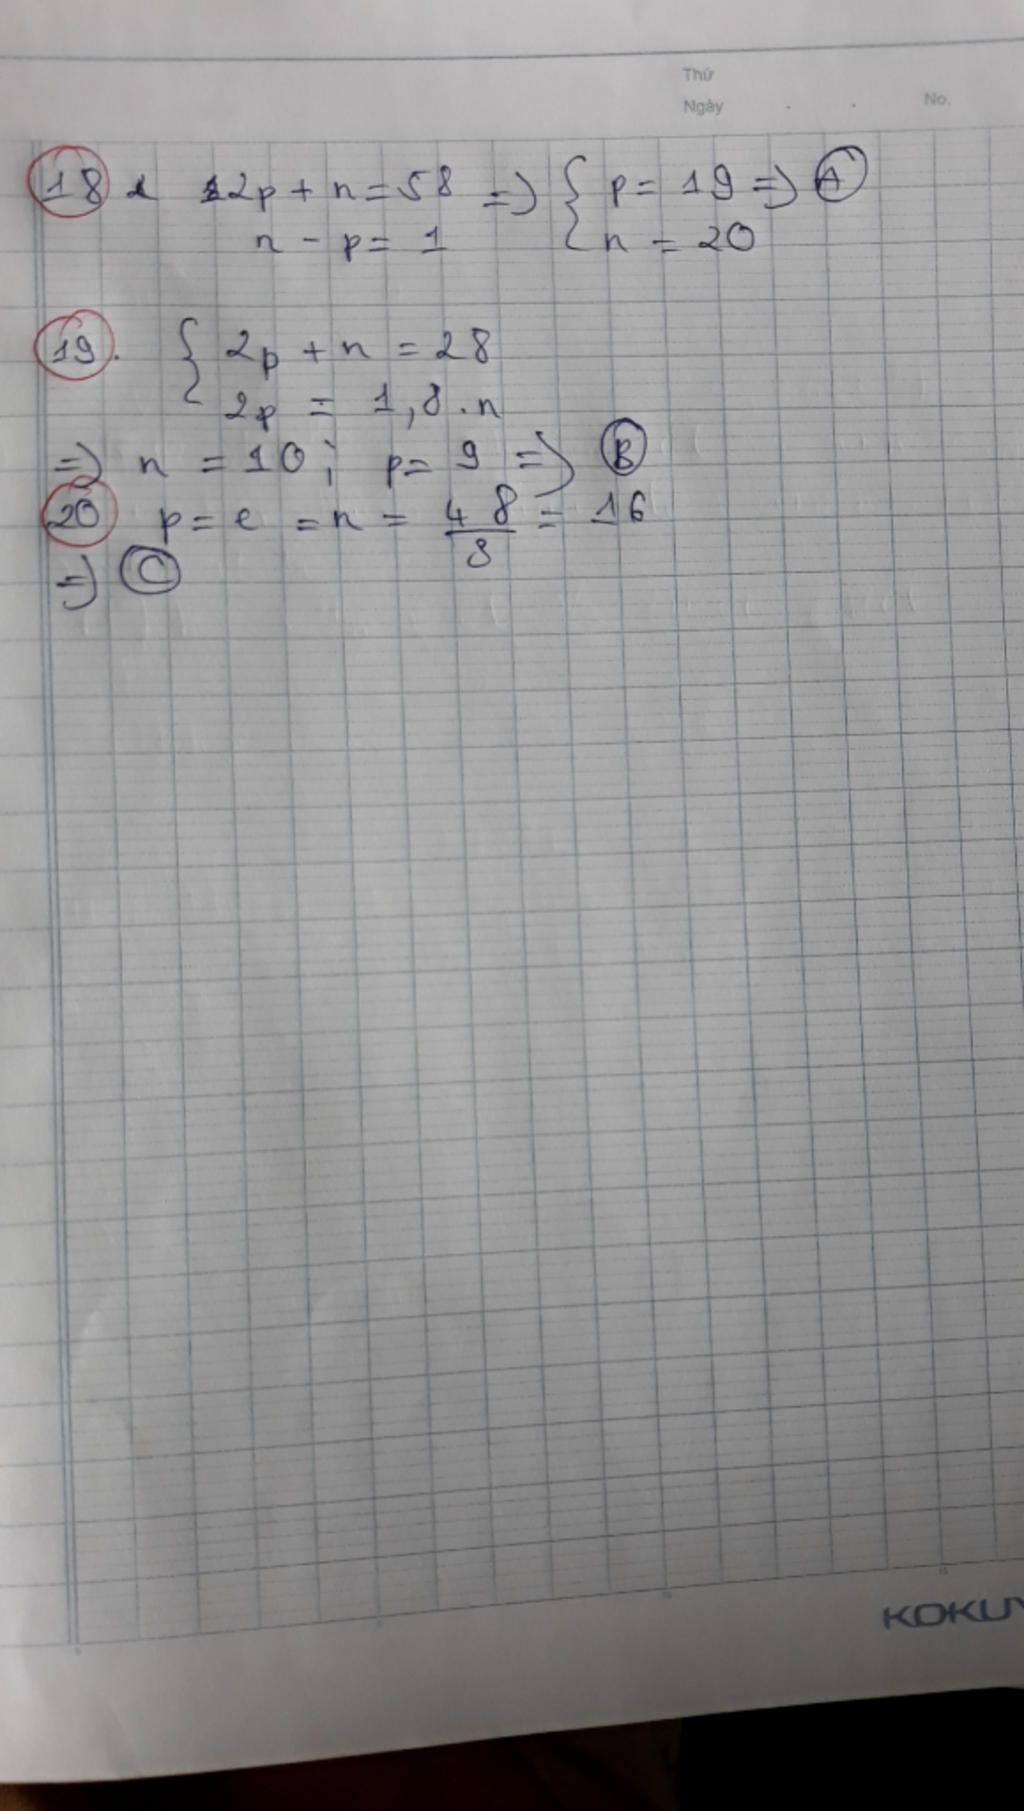 Thứ
Ngày . . No.
18 2p + n = 58 => { p = 19 => A
n - p = 1 n = 20
19. { 2p + n = 28
2p = 1,8 . n
=> n = 10 ; p = 9 => B
20 p = e = n = 48/3 = 16
=> C
KOKUY